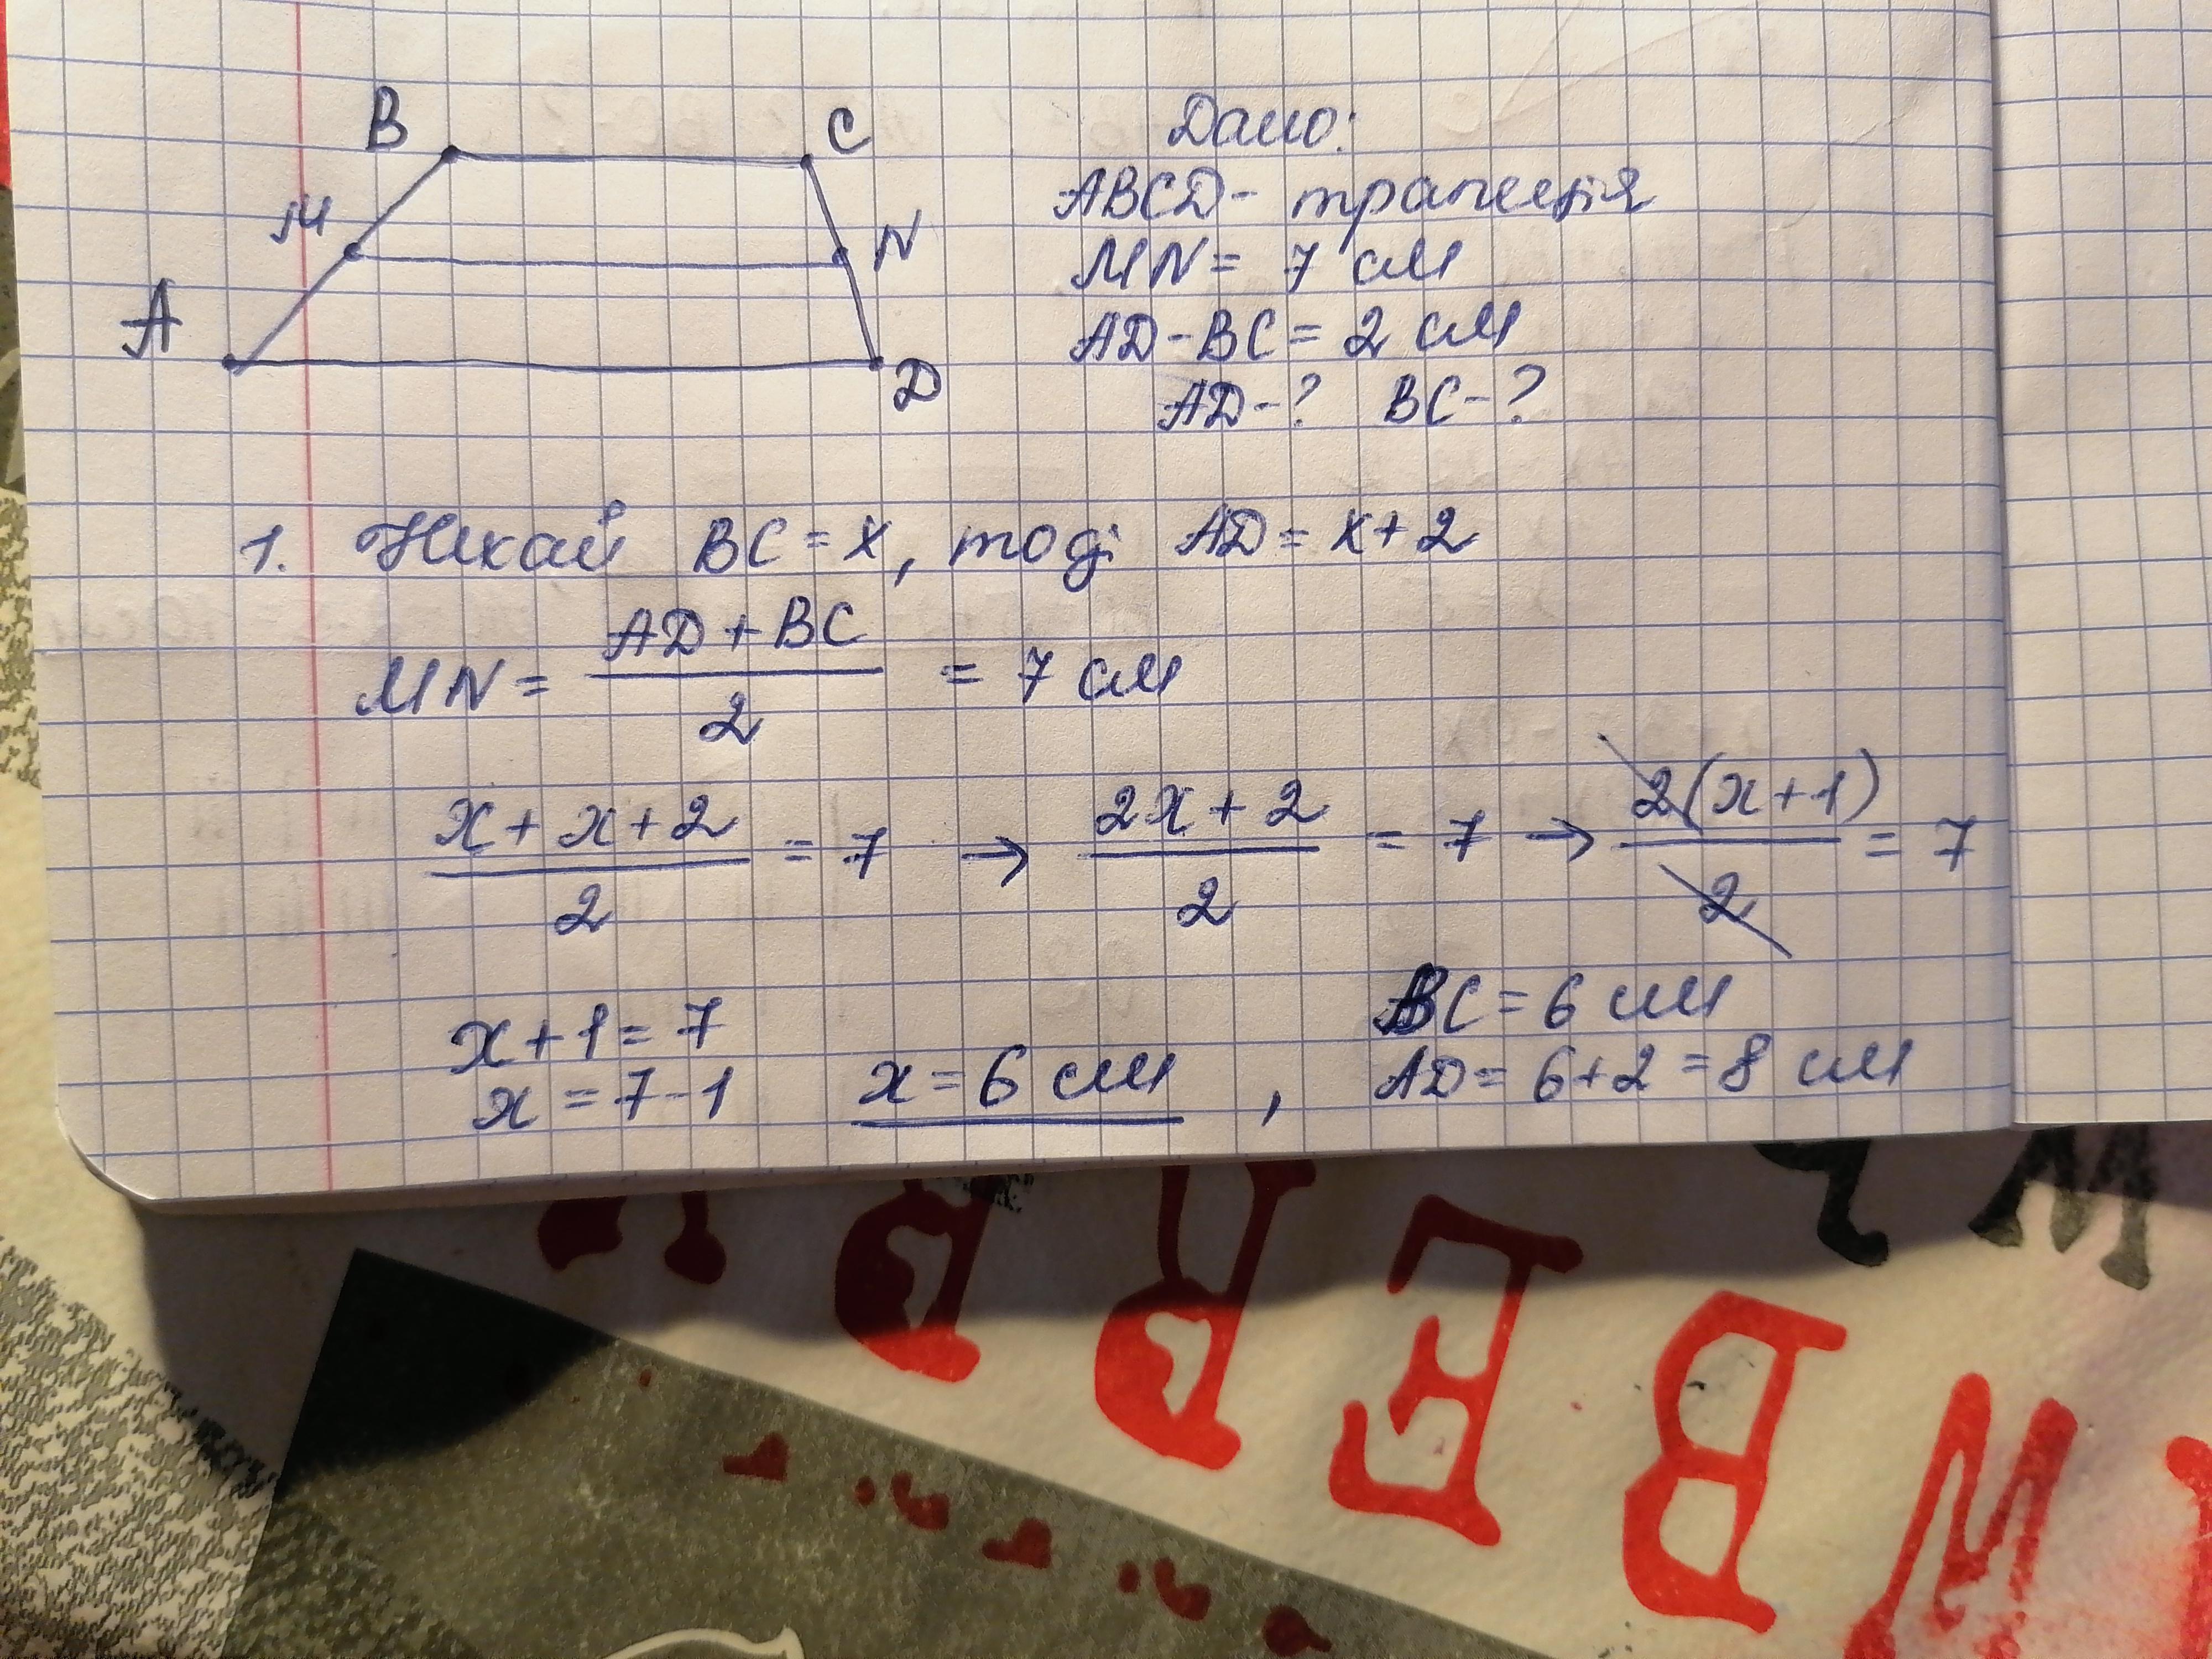 B C
M N
A D
Дано:
ABCD - трапеція
MN = 7 см
AD - BC = 2 см
AD - ? BC - ?
1. Нехай BC = x, тоді AD = x + 2
MN = (AD + BC)/2 = 7 см
(x + x + 2)/2 = 7 → (2x + 2)/2 = 7 → 2(x + 1)/2 = 7
x + 1 = 7
x = 7 - 1 x = 6 см ,
BC = 6 см
AD = 6 + 2 = 8 см